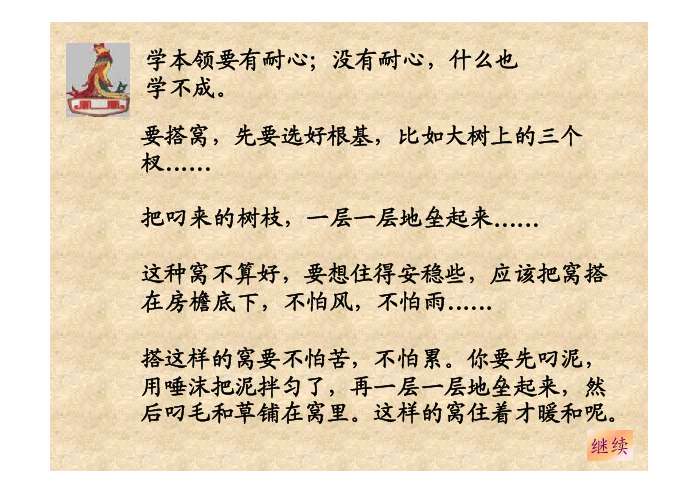 学本领要有耐心；没有耐心，什么也
学不成。
要搭窝，先要选好根基，比如大树上的三个
杈……
把叼来的树枝，一层一层地垒起来……
这种窝不算好，要想住得安稳些，应该把窝搭
在房檐底下，不怕风，不怕雨……
搭这样的窝要不怕苦，不怕累。你要先叼泥，
用唾沫把泥拌匀了，再一层一层地垒起来，然
后叼毛和草铺在窝里。这样的窝住着才暖和呢。
继续